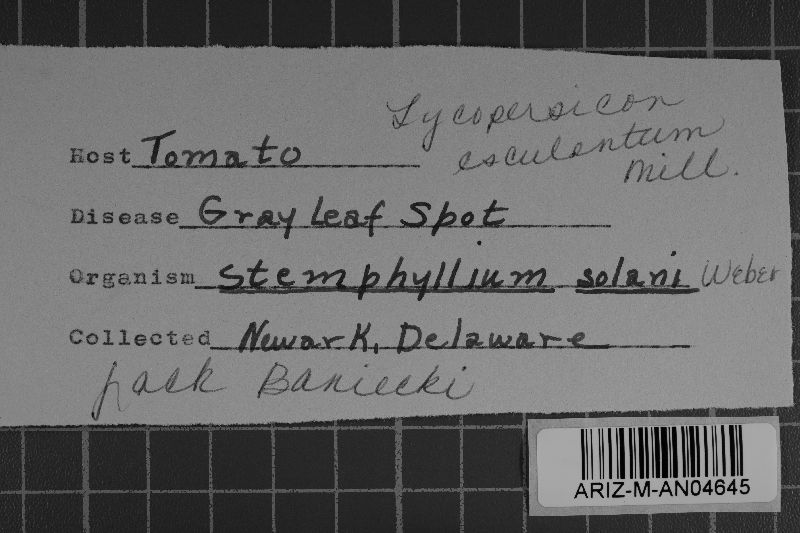 Lycopersicon
esculentum
Mill.
Host Tomato
Disease Gray Leaf Spot
Organism Stemphyllium solani Weber
Collected Newark, Delaware
Jack Baniecki
ARIZ-M-AN04645